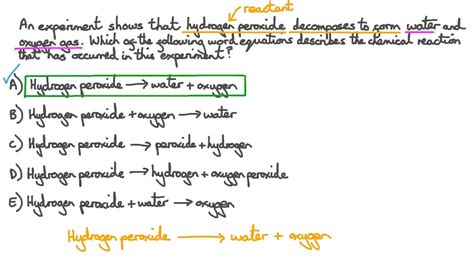 reactant
An experiment shows that hydrogen peroxide decomposes to form water and
oxygen gas. Which of the following word equations describes the chemical reaction
that has occurred in this experiment?
A) Hydrogen peroxide ⟶ water + oxygen
B) Hydrogen peroxide + oxygen ⟶ water
C) Hydrogen peroxide ⟶ peroxide + hydrogen
D) Hydrogen peroxide ⟶ hydrogen + oxygen peroxide
E) Hydrogen peroxide + water ⟶ oxygen
Hydrogen peroxide ⟶ water + oxygen